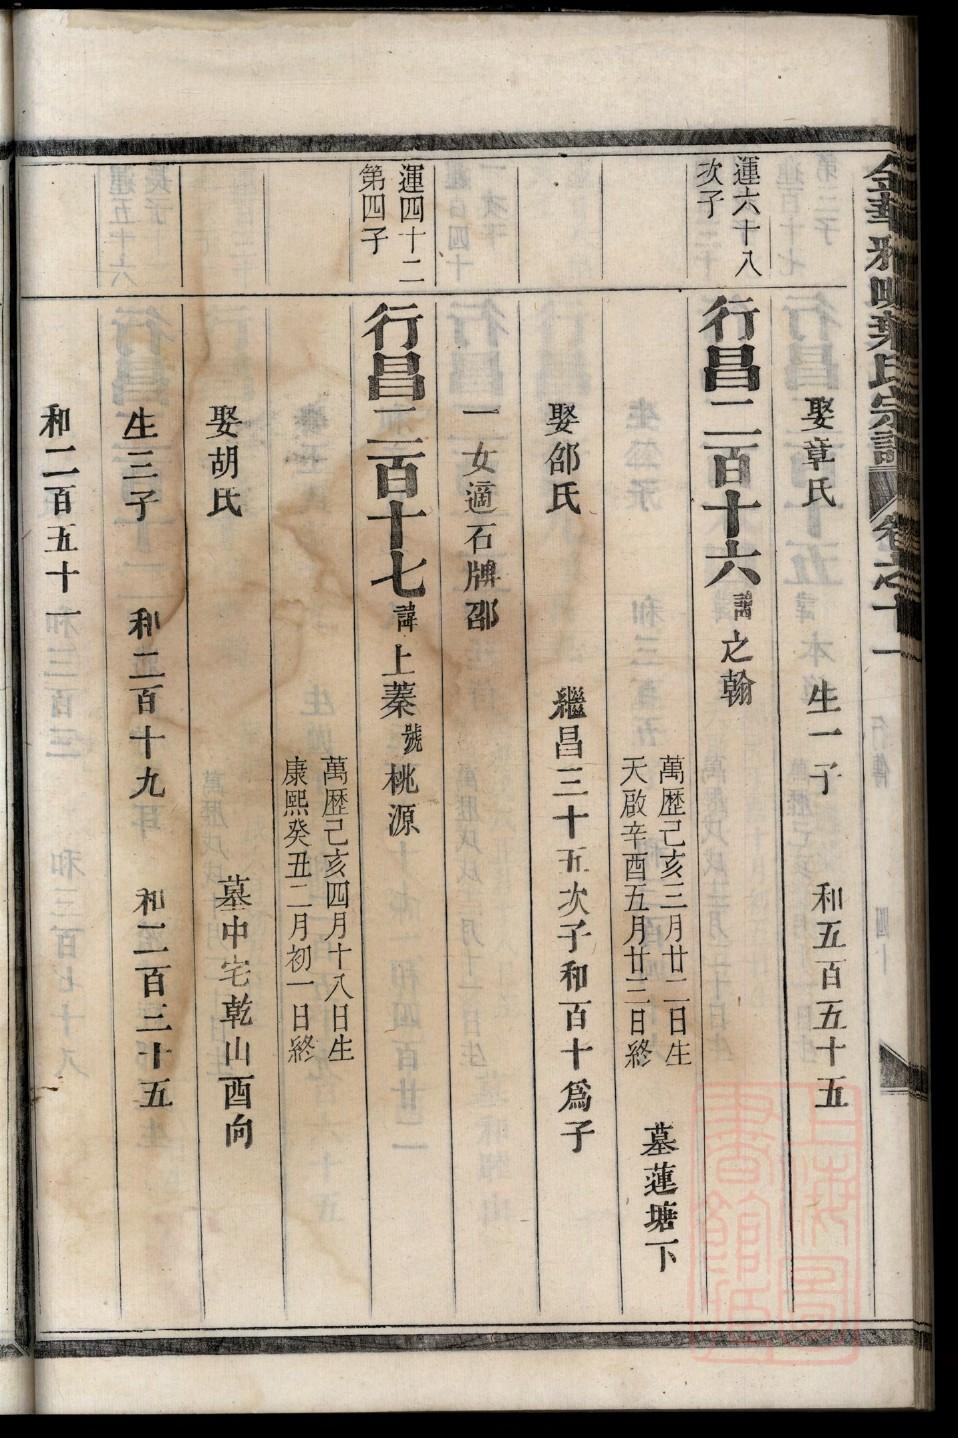 金華雅畈葉氏宗譜 卷之十一 行傳
娶章氏 生一子 和五百五十五
運六十八次子
行昌二百十六 諱之翰
萬歷己亥三月廿二日生
天啟辛酉五月廿二日終
墓蓮塘下
娶郤氏 繼昌三十五次子和百十為子
一女適石牌邵
運四十二第四子
行昌二百十七 諱上蓁 號桃源
萬歷己亥四月十八日生
康熙癸丑二月初一日終
娶胡氏 墓中宅乾山酉向
生三子 和二百十九 和二百三十五
和二百五十一